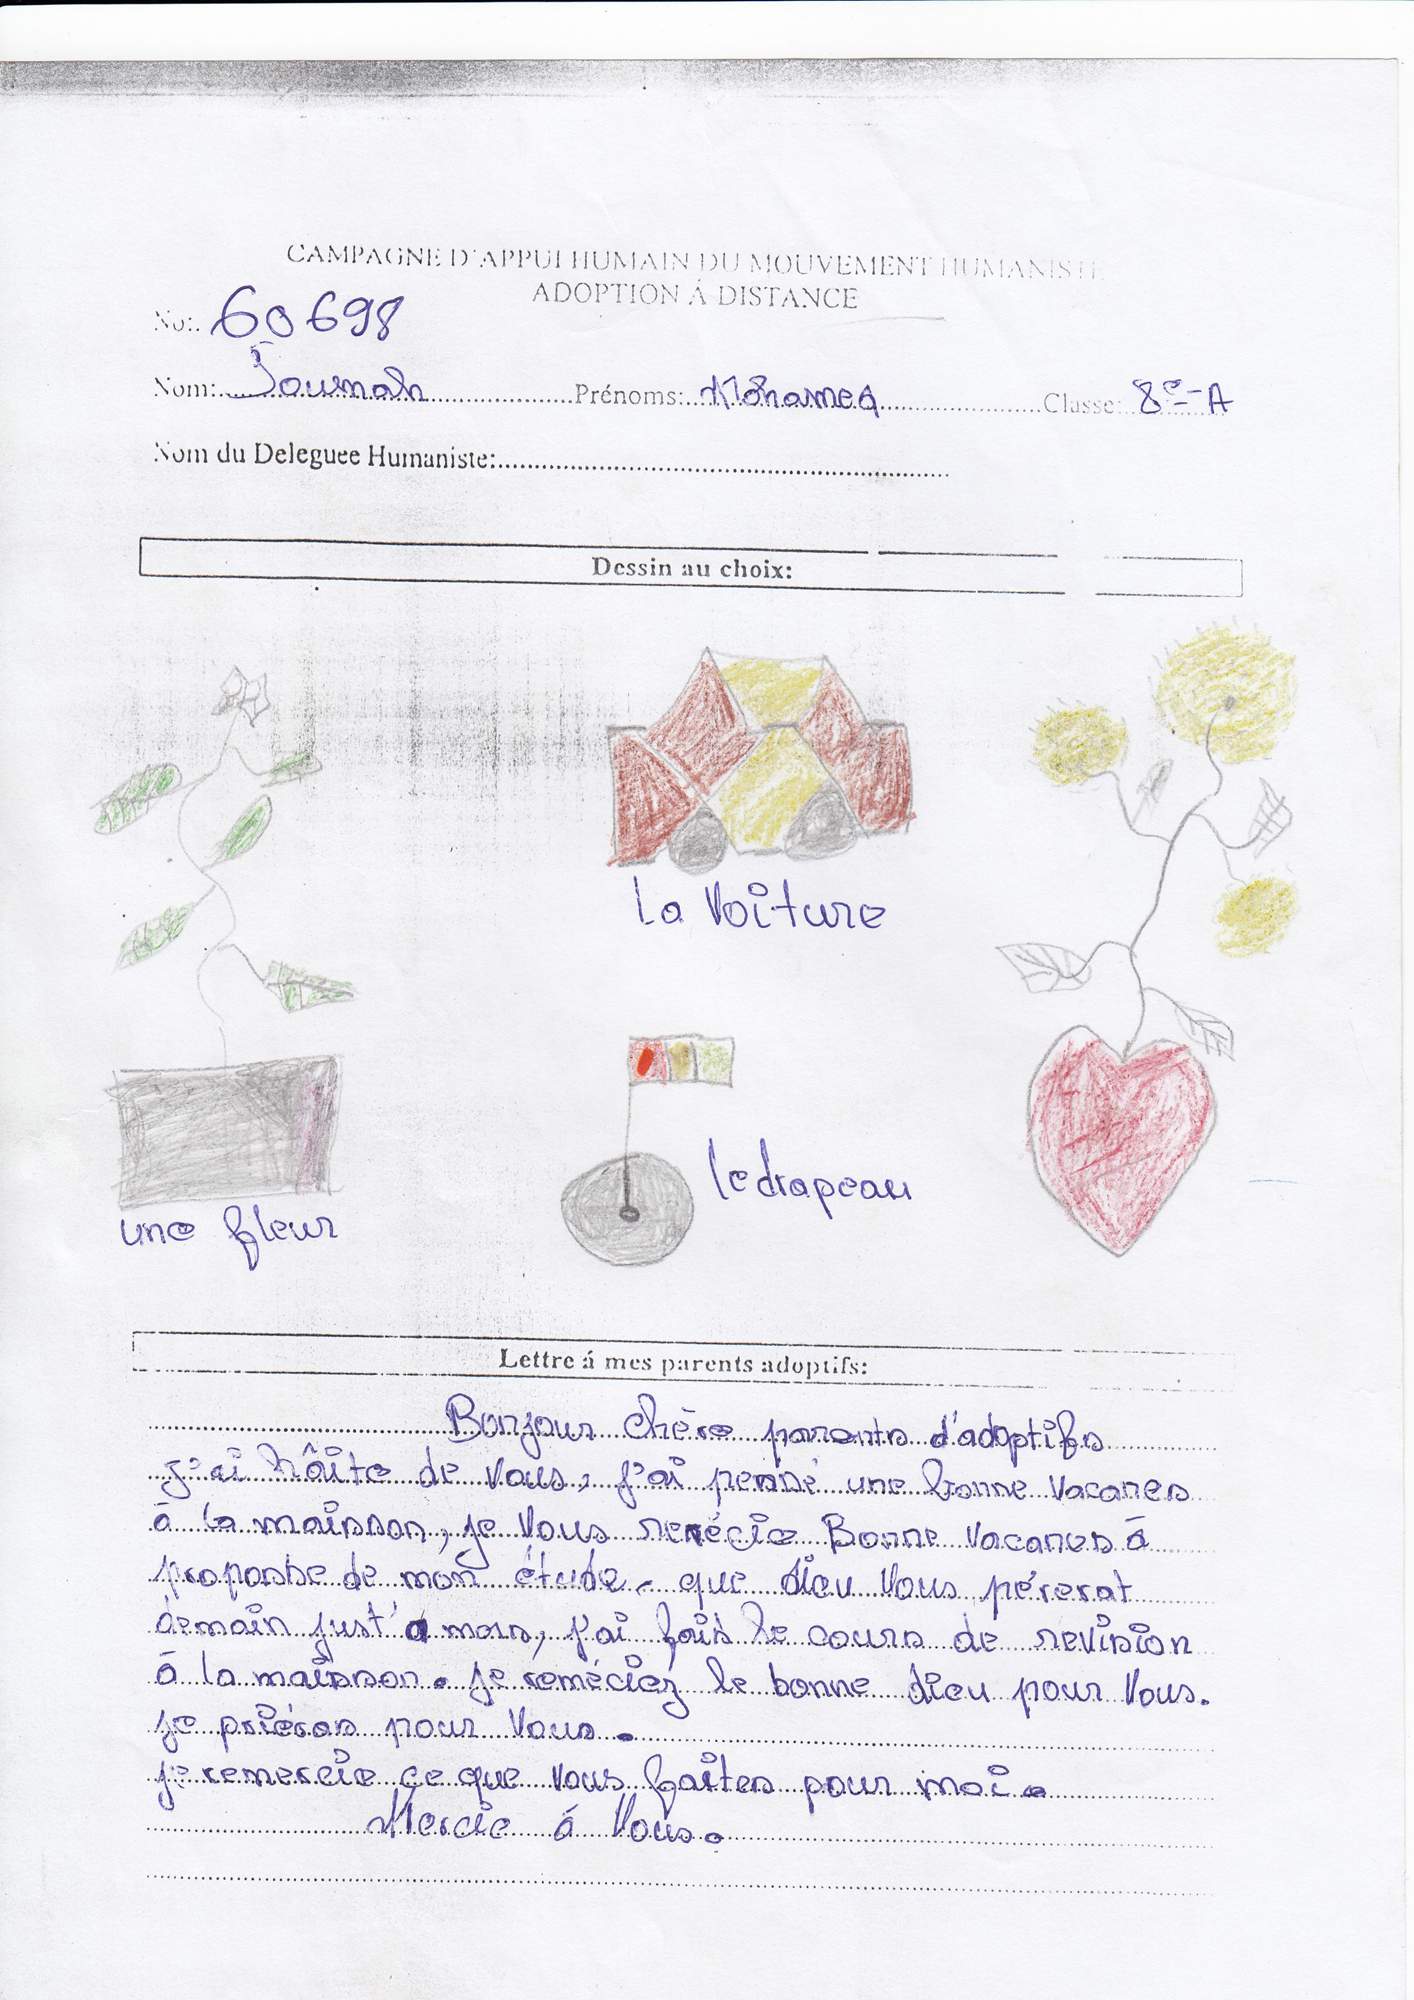 CAMPAGNE D'APPUI HUMAIN DU MOUVEMENT HUMANISTE
ADOPTION Á DISTANCE
No: 60698
Nom: Soumah Prénoms: Mohamed Classe: 8e-A
Nom du Deleguee Humaniste:
Dessin au choix:
la voiture
le drapeau
une fleur
Lettre á mes parents adoptifs:
Bonjour chère parents d'adoptifs
j'ai hâite de vous, j'ai pensé une bonne vacances
à la maisson, je vous Bonne vacances à
proposbe de mon étude, que dieu vous
demain just'a mors, j'ai fais le cours de revision
à la maisson. je réméciez le bonne dieu pour vous.
je priéras pour vous.
je remercie ce que vous faites pour moi.
Mercie à vous.